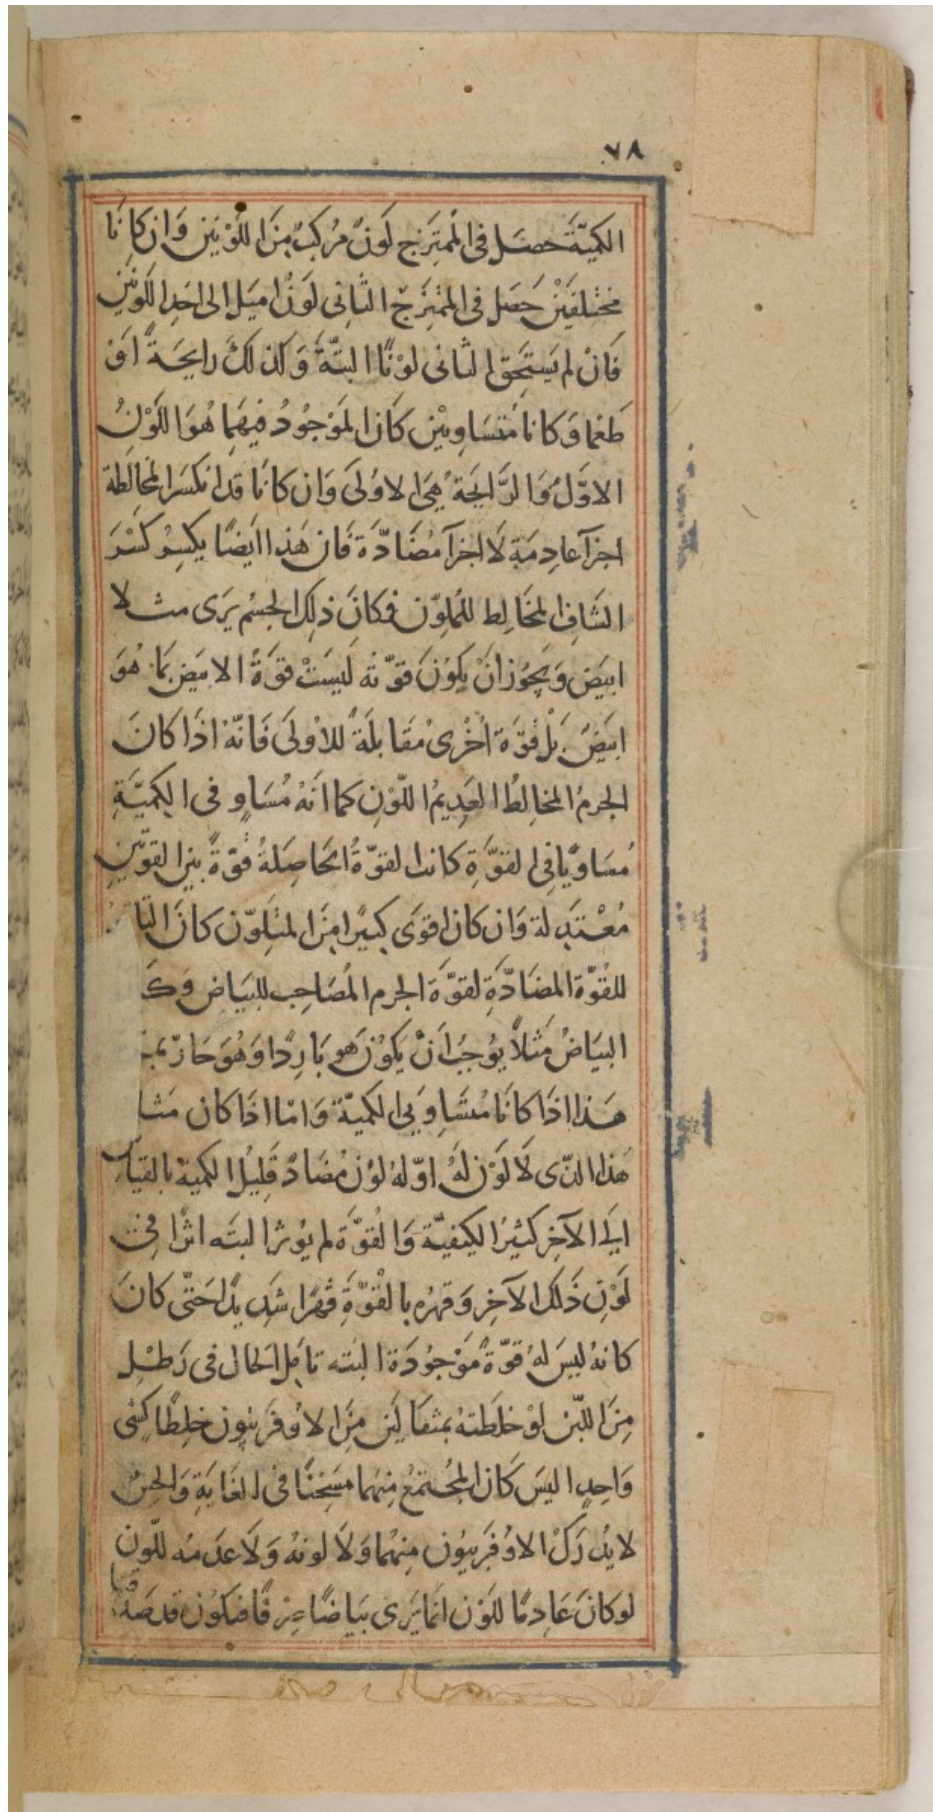 ٧٨
الكميّة حصل فى الممتزج لون مركب من اللونين وان كانا
مختلفين حصل فى الممتزج الثانى لون اميل الى احد اللونين
فان لم يستحق الثانى لونًا البتّة وكذلك رايحة او
طعما وكانا متساويين كان الموجود فيهما هو اللون
الاوّل والرّايحة هى الاولى وان كانا قد انكسرا لمخالطة
اجزآ عادمة لا اجزآ مضادّة فان هذا ايضًا يكسر كسر
الشاف المخالط للملوّن فكان ذلك الجسم يرى مثلا
ابيض ويجوز أن يكون قوّته ليست قوة الابيض بما هو
ابيض بل قوّة اخرى مقابلة للاولى فانّه اذا كان
الجرم المخالط العديم اللّون كما انه مساوٍ فى الكميّة
مساويًا فى القوّة كانت القوّة الحاصلة قوّة بين القوّتين
معتدلة وان كان اقوى كبيرا من المتلوّن كان التا
للقوّة المضادّة لقوّة الجرم المصاحب للبياض وك
البياض مثلاً يوجب ان يكون هو باردًا وهو حارّ
هذا اذا كانا متساويى الكميّة وامّا اذا كان مثلا
هذا الذّى لا لون له او له لون مضاد قليل الكمية بالقياس
الى الآخر كثير الكيفيّة والقوّة لم يوثر البتّه اثرًا فى
لون ذلك الآخر وقهره بالقوّة قهرًا شديدًا حتّى كان
كانه ليس له قوّة موجودة البته تامل الحال فى رطل
من اللّبن لو خلطته بمثقالين من الاوفربيون خلطًا كشى
واحدٍ اليس كان المجتمع منهما مسخنًا فى الغاية والحسّ
لا يدرك الاوفربيون منهما ولا لونه ولا عدمه للّون
لو كان عادمًا للّون انما يرى بياضًا صرفًا فيكون قد صدقا